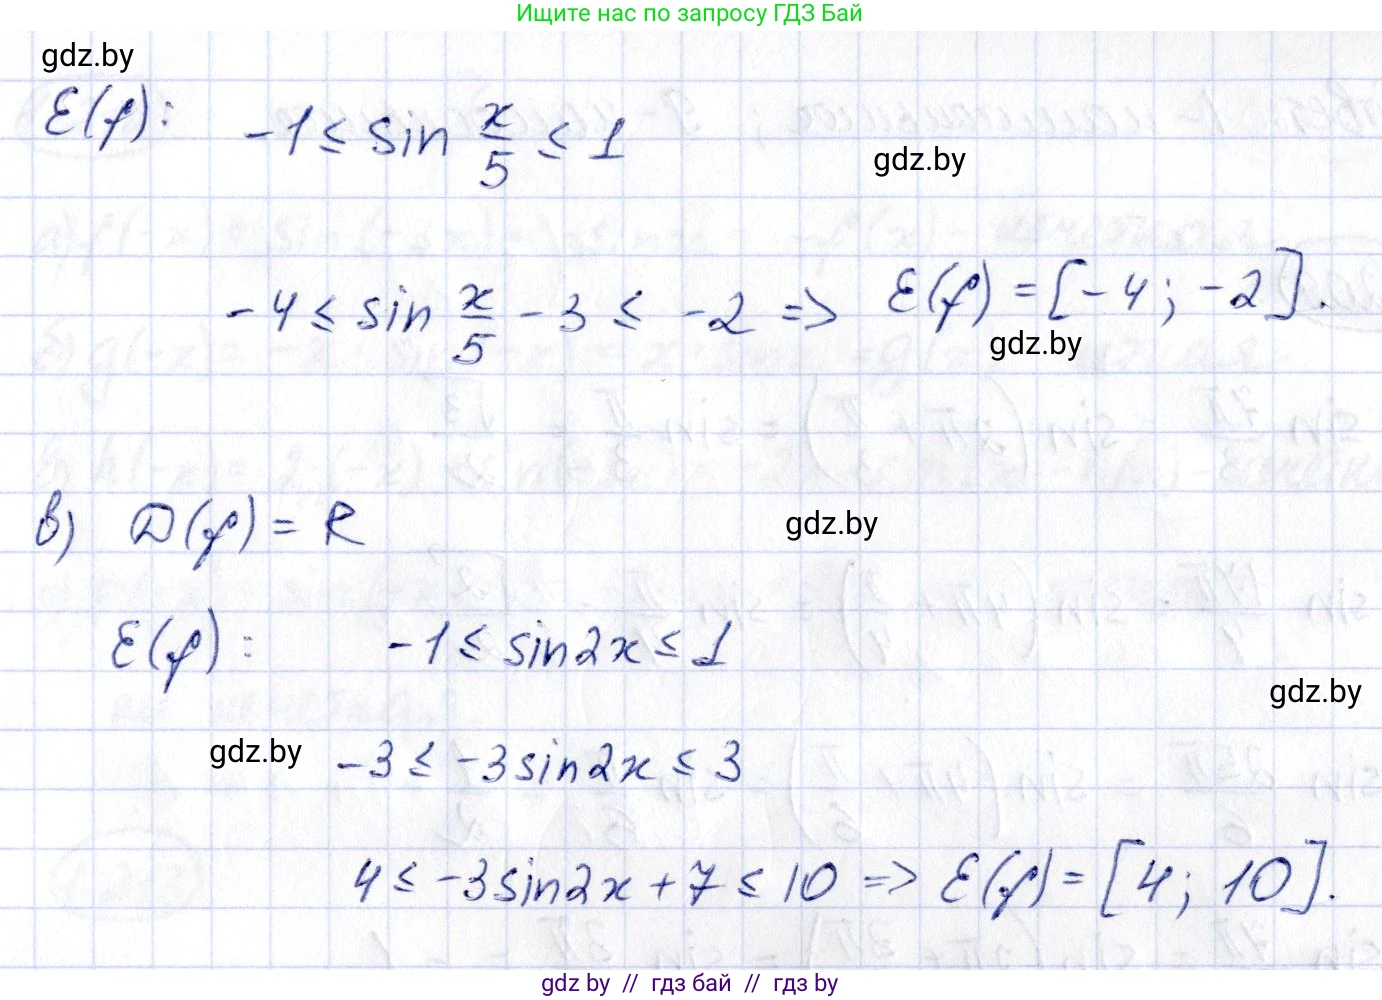 Ищите нас по запросу ГДЗ Бай
gdz.by
E(f): -1 ≤ sin x/5 ≤ 1
gdz.by
-4 ≤ sin x/5 - 3 ≤ -2 => E(f) = [-4; -2].
gdz.by
в) D(f) = R
gdz.by
E(f): -1 ≤ sin2x ≤ 1
gdz.by
gdz.by
-3 ≤ -3sin2x ≤ 3
4 ≤ -3sin2x + 7 ≤ 10 => E(f) = [4; 10].
gdz by // гдз бай // гдз by